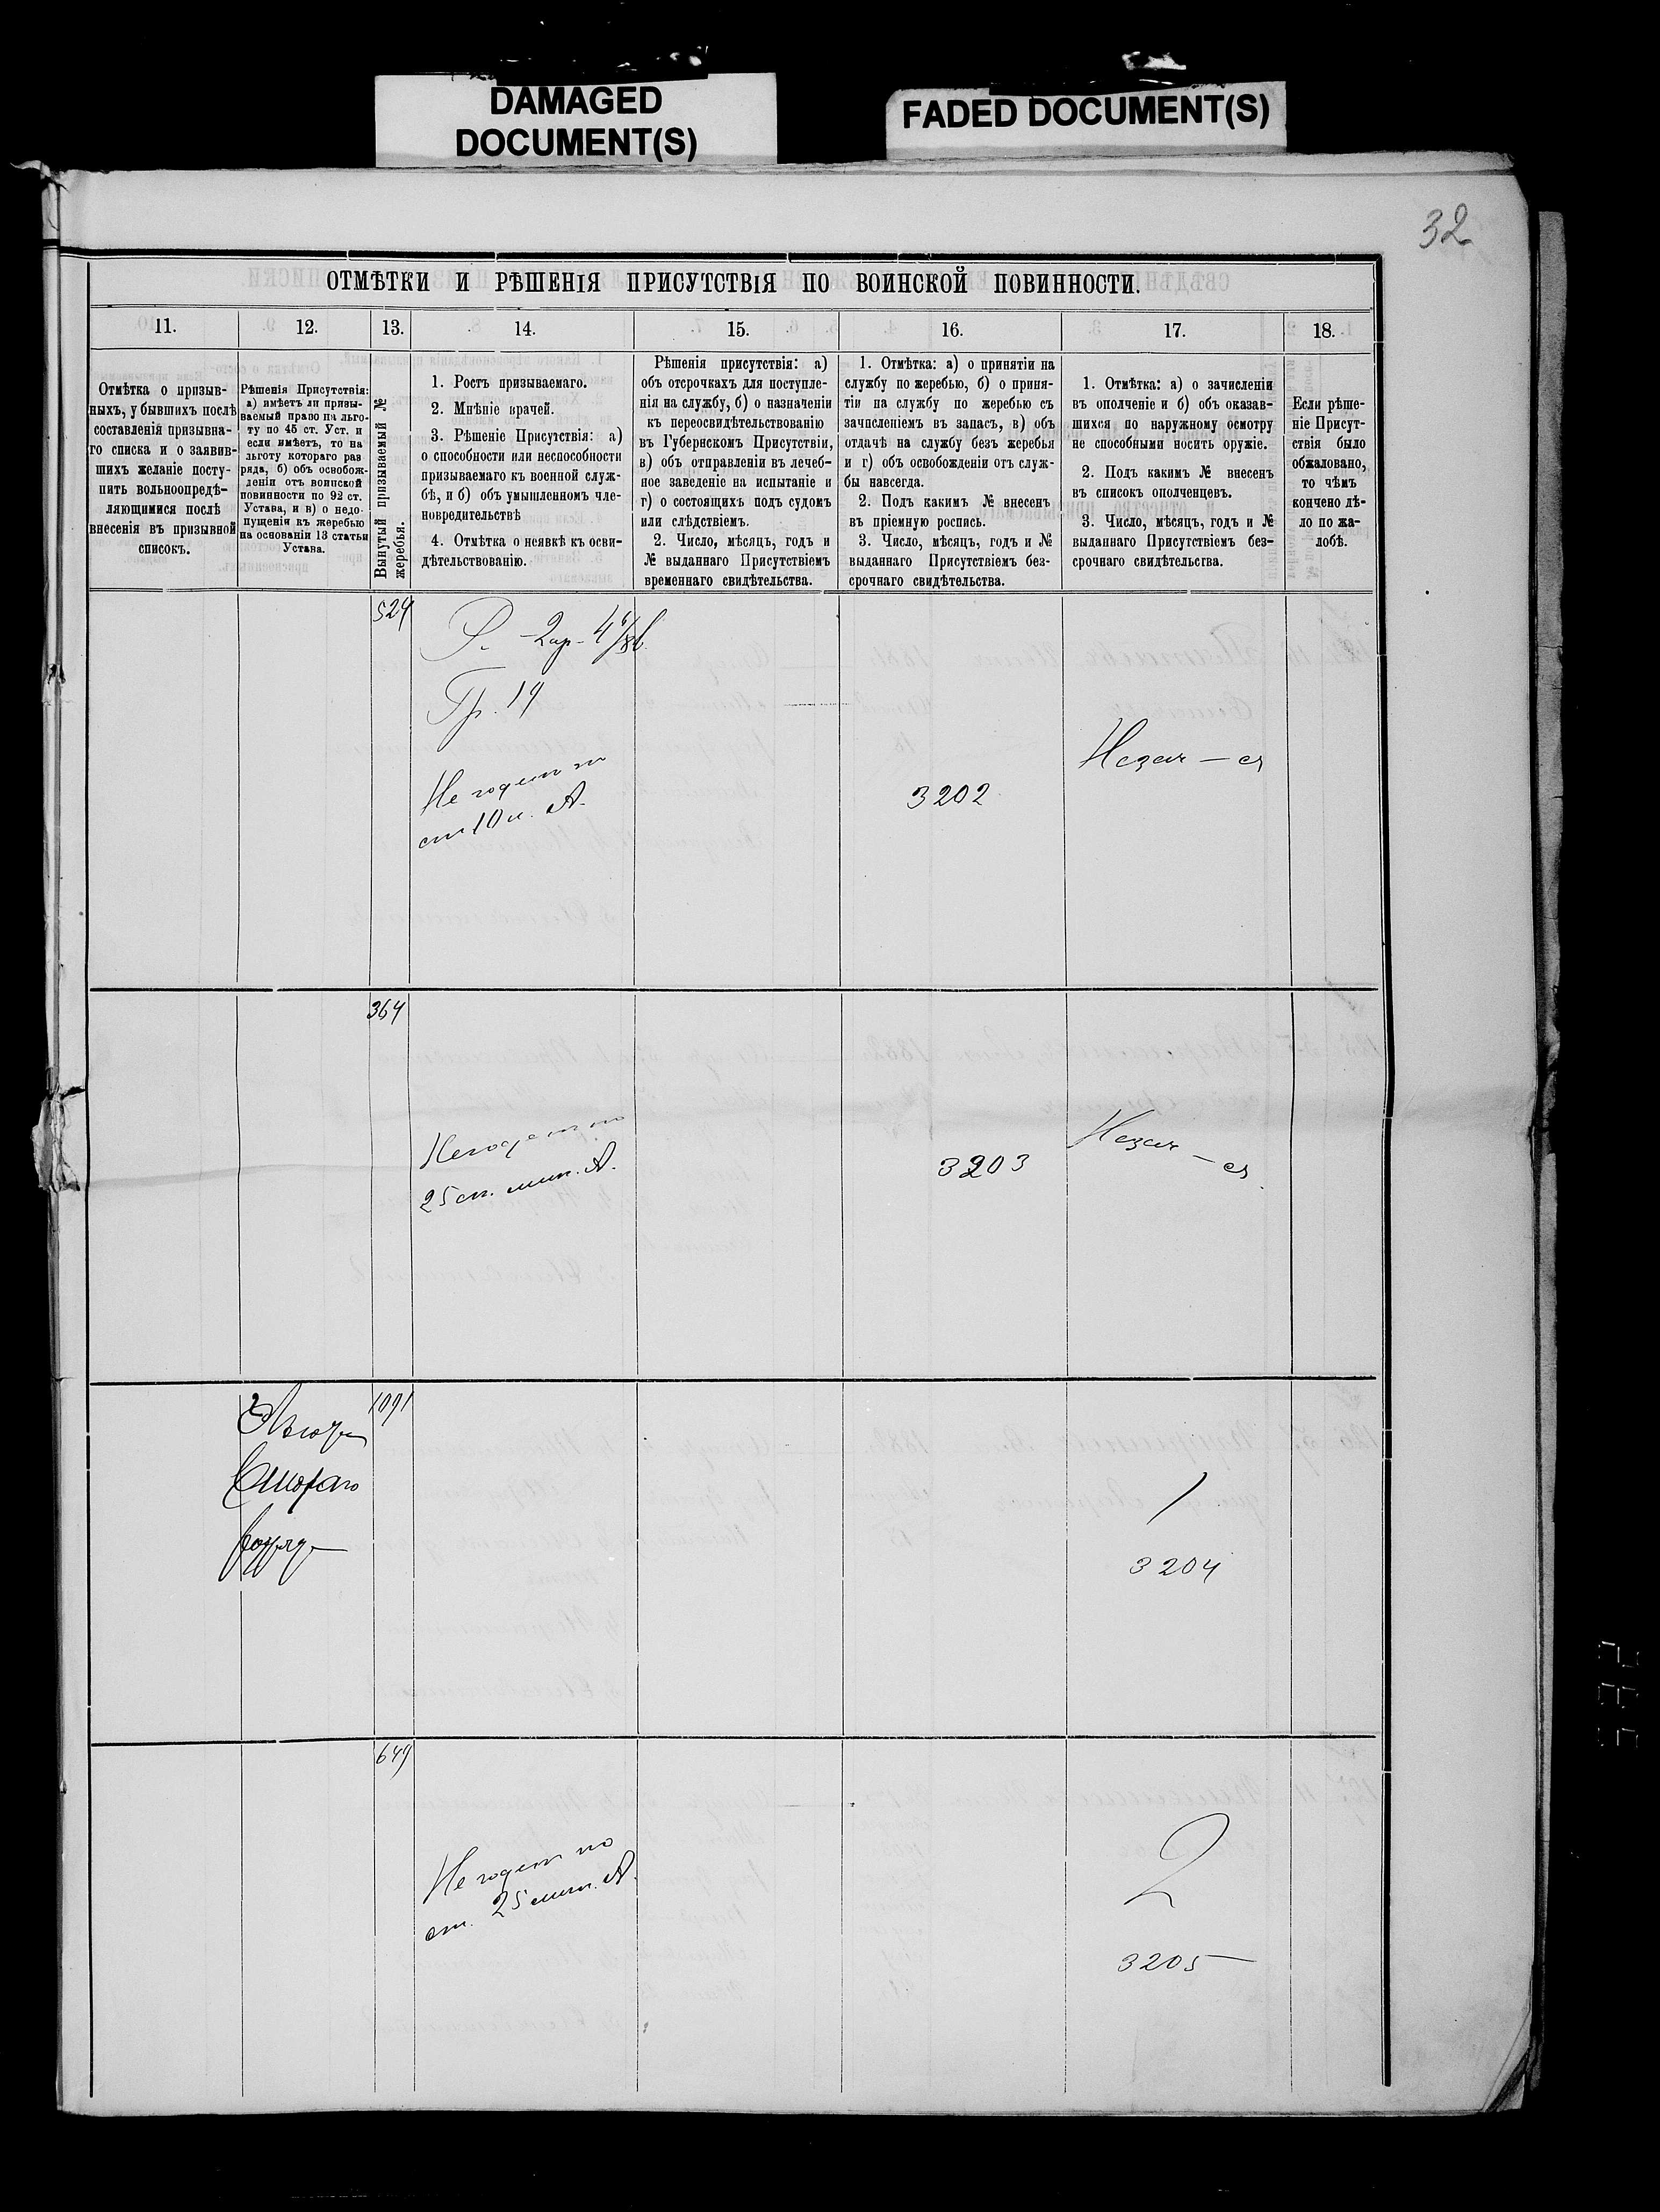 DAMAGED
DOCUMENT(S)
FADED DOCUMENT(S)
32
ОТМѢТКИ И РѢШЕНІЯ ПРИСУТСТВІЯ ПО ВОИНСКОЙ ПОВИННОСТИ.
11. 12. 13. 14. 15. 16. 17. 18.
Отмѣтка о призыв-
ныхъ, убывшихъ послѣ
составленія призывна-
го списка и о заявив-
шихъ желаніе посту-
пить вольноопредѣ-
ляющимися послѣ
внесенія въ призывной
списокъ.
Рѣшенія Присутствія:
а) имѣетъ ли призы-
ваемый право на льго-
ту по 45 ст. Уст. и
если имѣетъ, то на
льготу котораго раз
ряда, б) объ освобож-
деніи отъ воинской
повинности по 92 ст.
Устава, и в) о недо-
пущеніи къ жеребью
на основаніи 13 статьи
Устава.
Вынутый призываемый №
жеребья.
1. Ростъ призываемаго.
2. Мнѣніе врачей.
3. Рѣшеніе Присутствія: а)
о способности или неспособности
призываемаго къ военной служ-
бѣ, и б) объ умышленномъ чле-
новредительствѣ
4. Отмѣтка о неявкѣ къ осви-
дѣтельствованію.
Рѣшенія присутствія: а)
объ отсрочкахъ для поступле-
нія на службу, б) о назначеніи
къ переосвидѣтельствованію
въ Губернскомъ Присутствіи,
в) объ отправленіи въ лечеб-
ное заведеніе на испытаніе и
г) о состоящихъ подъ судомъ
или слѣдствіемъ.
2. Число, мѣсяцъ, годъ и
№ выданнаго Присутствіемъ
временнаго свидѣтельства.
1. Отмѣтка: а) о принятіи на
службу по жеребью, б) о приня-
тіи на службу по жеребью съ
зачисленіемъ въ запасъ, в) объ
отдачѣ на службу безъ жеребья
и г) объ освобожденіи отъ служ-
бы навсегда.
2. Подъ какимъ № внесенъ
въ пріемную роспись.
3. Число, мѣсяцъ, годъ и №
выданнаго Присутствіемъ без-
срочнаго свидѣтельства.
1. Отмѣтка: а) о зачисленіи
въ ополченіе и б) объ оказав-
шихся по наружному осмотру
не способными носить оружіе.
2. Подъ какимъ № внесенъ
въ списокъ ополченцевъ.
3. Число, мѣсяцъ, годъ и №
выданнаго Присутствіемъ без-
срочнаго свидѣтельства.
Если рѣше-
ніе Присут-
ствія было
обжаловано,
то чѣмъ
кончено дѣ-
ло по жа-
лобѣ.
524
Р. 2ар. 4
Гр. 19
Не годент по
ст 10 А.
3202
Незач - ся
364
Негодент по
25 ст. лит. А.
3203
Незач - ся
1091
Льгота
Втораго
разряда
1
3204
649
Не годент по
ст. 25 лит. А.
2
3205